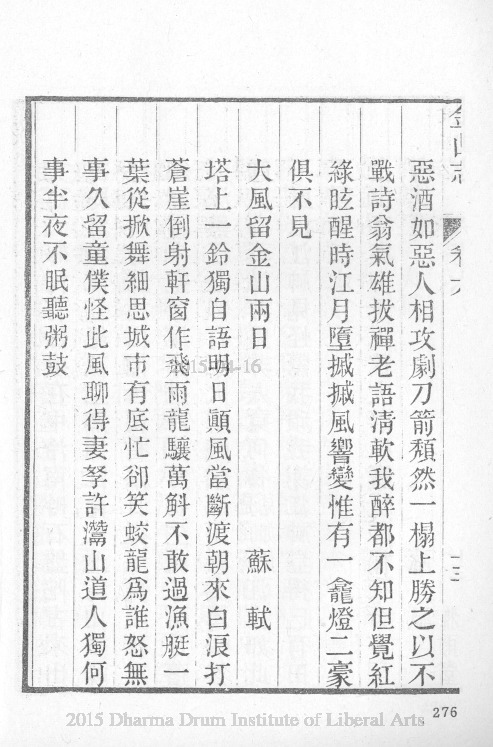 惡酒如惡人相攻劇刀箭頹然一榻上勝之以不
戰詩翁氣雄拔禪老語清軟我醉都不知但覺紅
綠眩醒時江月墮摵摵風響變惟有一龕燈二豪
俱不見
大風留金山兩日 蘇軾
塔上一鈴獨自語明日顚風當斷渡朝來白浪打
蒼崖倒射軒窗作飛雨龍驤萬斛不敢過漁艇一
葉從掀舞細思城市有底忙卻笑蛟龍爲誰怒無
事久留童僕怪此風聊得妻孥許灊山道人獨何
事半夜不眠聽粥鼓
276
2015 Dharma Drum Institute of Liberal Arts